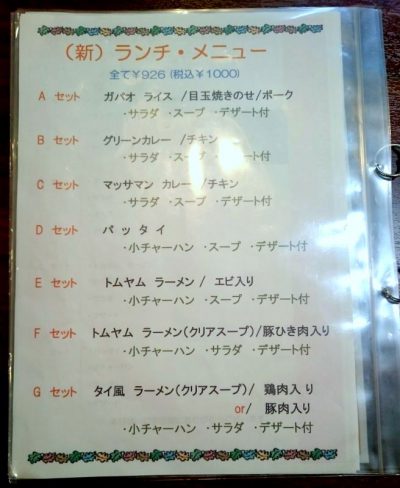 (新) ランチ・メニュー
全て¥926 (税込¥1000)
A セット ガパオ ライス /目玉焼きのせ/ポーク
・サラダ ・スープ ・デザート付
B セット グリーンカレー /チキン
・サラダ ・スープ ・デザート付
C セット マッサマン カレー /チキン
・サラダ ・スープ ・デザート付
D セット パッタイ
・小チャーハン ・スープ ・デザート付
E セット トムヤム ラーメン / エビ入り
・小チャーハン ・スープ ・デザート付
F セット トムヤム ラーメン(クリアスープ)/豚ひき肉入り
・小チャーハン ・サラダ ・デザート付
G セット タイ風 ラーメン(クリアスープ)/ 鶏肉入り
or/ 豚肉入り
・小チャーハン ・サラダ ・デザート付